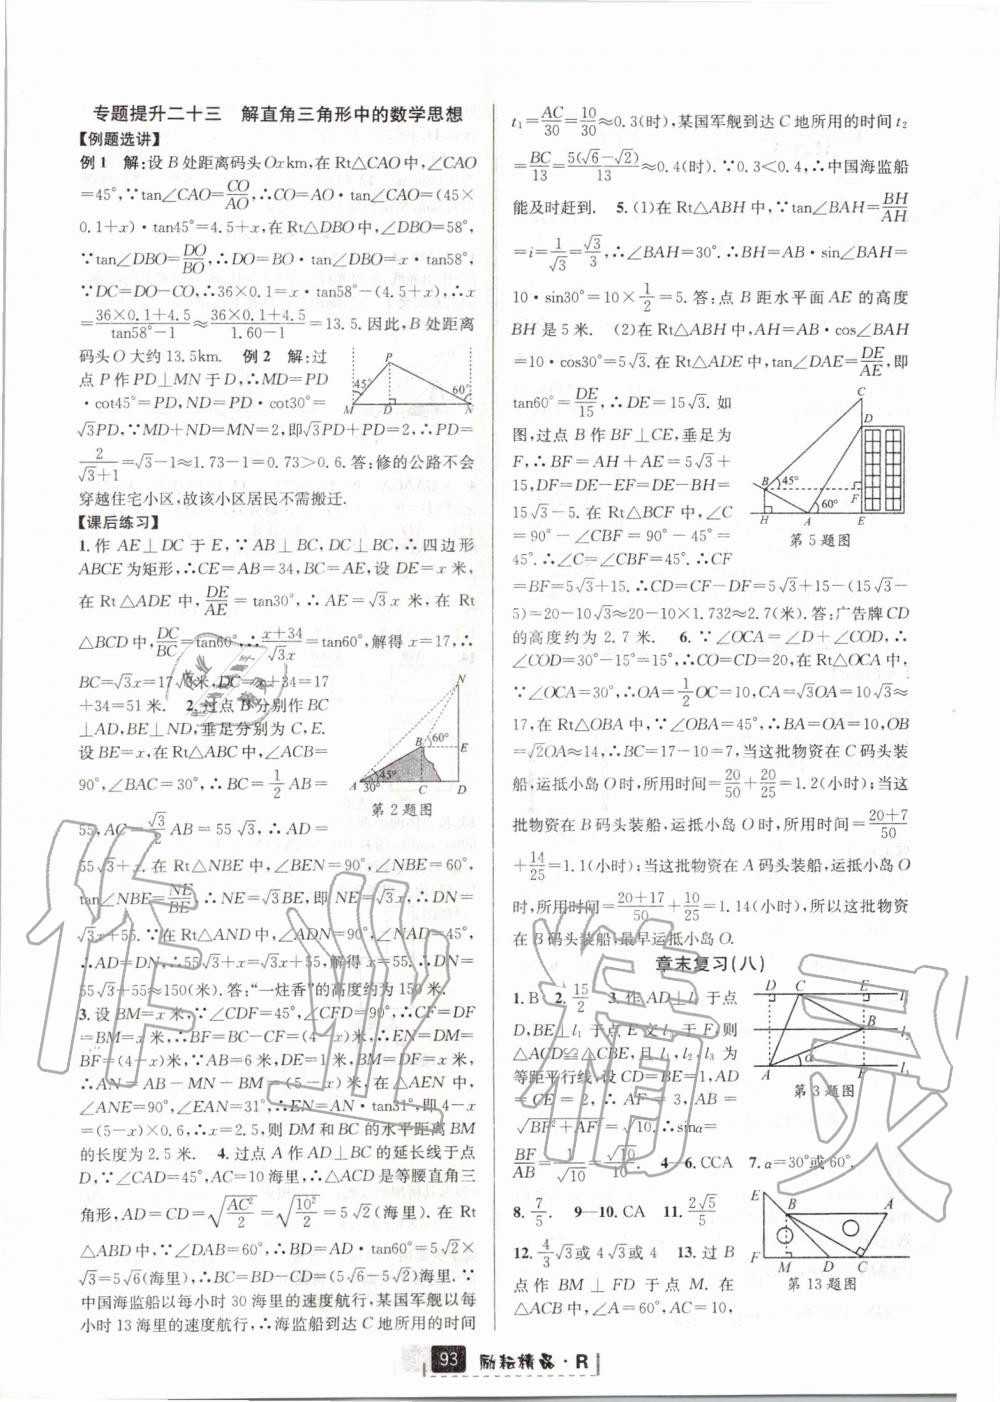 专题提升二十三 解直角三角形中的数学思想
【例题选讲】
例1 解:设B处距离码头Oxkm,在Rt△CAO中,∠CAO
=45°,∵tan∠CAO=CO/AO,∴CO=AO·tan∠CAO=(45×
0.1+x)·tan45°=4.5+x,在Rt△DBO中,∠DBO=58°,
∵tan∠DBO=DO/BO,∴DO=BO·tan∠DBO=x·tan58°,
∵DC=DO-CO,∴36×0.1=x·tan58°-(4.5+x),∴x
=(36×0.1+4.5)/(tan58°-1)≈(36×0.1+4.5)/(1.60-1)=13.5.因此,B处距离
码头O大约13.5km. 例2 解:过
点P作PD⊥MN于D,∴MD=PD
·cot45°=PD,ND=PD·cot30°=
√3PD,∵MD+ND=MN=2,即√3PD+PD=2,∴PD=
2/(√3+1)=√3-1≈1.73-1=0.73>0.6.答:修的公路不会
穿越住宅小区,故该小区居民不需搬迁.
P 45° 60° M D N
【课后练习】
1.作AE⊥DC于E,∵AB⊥BC,DC⊥BC,∴四边形
ABCE为矩形,∴CE=AB=34,BC=AE,设DE=x米,
在Rt△ADE中,DE/AE=tan30°,∴AE=√3x米,在Rt
△BCD中,DC/BC=tan60°,∴(x+34)/(√3x)=tan60°,解得x=17,∴
BC=√3x=17√3米,∴CD=17
+34=51米. 2.过点B分别作BC
⊥AD,BE⊥ND,垂足分别为C,E.
设BE=x,在Rt△ABC中,∠ACB=
90°,∠BAC=30°,∴BC=1/2AB=
55,AC=√3/2AB=55√3,∴AD=
55√3+x.在Rt△NBE中,∠BEN=90°,∠NBE=60°,
tan∠NBE=NE/BE,∴NE=√3BE,即NE=√3x,∴DN=
√3x+55.在Rt△AND中,∠ADN=90°,∠NAD=45°,
∴DN=AD,即55√3+x=√3x+55,解得x=55.∴DN=
55√3+55≈150(米).答:“一炷香”的高度约为150米.
N B 60° E 45° 30° A C D
第2题图
3.设BM=x米,∵∠CDF=45°,∠CFD=90°,∴CF=DF
=BM=x米,∴BF=BC-CF=(4-x)米,∴EN=DM=
BF=(4-x)米,∵AB=6米,DE=1米,BM=DF=x米,
∴AN=AB-MN-BM=(5-x)米,在△AEN中,
∠ANE=90°,∠EAN=31°,∴EN=AN·tan31°,即4-x
=(5-x)×0.6,∴x=2.5,则DM和BC的水平距离BM
的长度为2.5米. 4.过点A作AD⊥BC的延长线于点
D,∵∠CAD=45°,AC=10海里,∴△ACD是等腰直角三
角形,AD=CD=√(AC²/2)=√(10²/2)=5√2(海里).在Rt
△ABD中,∵∠DAB=60°,∴BD=AD·tan60°=5√2×
√3=5√6(海里),∴BC=BD-CD=(5√6-5√2)海里.∵
中国海监船以每小时30海里的速度航行,某国军舰以每
小时13海里的速度航行,∴海监船到达C地所用的时间
t₁=AC/30=10/30≈0.3(时),某国军舰到达C地所用的时间t₂
=BC/13=5(√6-√2)/13≈0.4(时).∵0.3<0.4,∴中国海监船
能及时赶到. 5.(1)在Rt△ABH中,∵tan∠BAH=BH/AH
=i=1/√3=√3/3,∴∠BAH=30°.∴BH=AB·sin∠BAH=
10·sin30°=10×1/2=5.答:点B距水平面AE的高度
BH是5米. (2)在Rt△ABH中,AH=AB·cos∠BAH
=10·cos30°=5√3.在Rt△ADE中,tan∠DAE=DE/AE,即
tan60°=DE/15,∴DE=15√3.如
图,过点B作BF⊥CE,垂足为
F,∴BF=AH+AE=5√3+
15,DF=DE-EF=DE-BH=
15√3-5.在Rt△BCF中,∠C
=90°-∠CBF=90°-45°=
45°.∴∠C=∠CBF=45°.∴CF
=BF=5√3+15.∴CD=CF-DF=5√3+15-(15√3-
5)=20-10√3≈20-10×1.732≈2.7(米).答:广告牌CD
的高度约为2.7米. 6.∵∠OCA=∠D+∠COD,∴
∠COD=30°-15°=15°,∴CO=CD=20,在Rt△OCA中,
∵∠OCA=30°,∴OA=1/2OC=10,CA=√3OA=10√3≈
17,在Rt△OBA中,∵∠OBA=45°,∴BA=OA=10,OB
=√2OA≈14,∴BC=17-10=7,当这批物资在C码头装
船,运抵小岛O时,所用时间=20/50+20/25=1.2(小时);当这
批物资在B码头装船,运抵小岛O时,所用时间=(20+7)/50
+14/25=1.1(小时);当这批物资在A码头装船,运抵小岛O
时,所用时间=(20+17)/50+10/25=1.14(小时),所以这批物资
在B码头装船,最早运抵小岛O.
C D B 45° F 60° H A E
第5题图
章末复习(八)
1.B 2.15/2 3.作AD⊥l₁于点
D,BE⊥l₁于点E交l₃于F,则
△ACD≌△CBE,且l₁、l₂、l₃为
等距平行线,设CD=BE=1,AD
=CE=2,∴AF=3,AB=
√(BF²+AF²)=√10.∴sinα=
BF/AB=1/√10=√10/10. 4—6.CCA 7.α=30°或60°.
D C E l₁ B l₂ α A F
第3题图
8.7/5. 9—10.CA 11.2√5/5
12.4/3√3或4√3 13.过B
点作BM⊥FD于点M.在
△ACB中,∠A=60°,AC=10,
E B A F M D C
第13题图
93 励耘精品·R
作业精灵